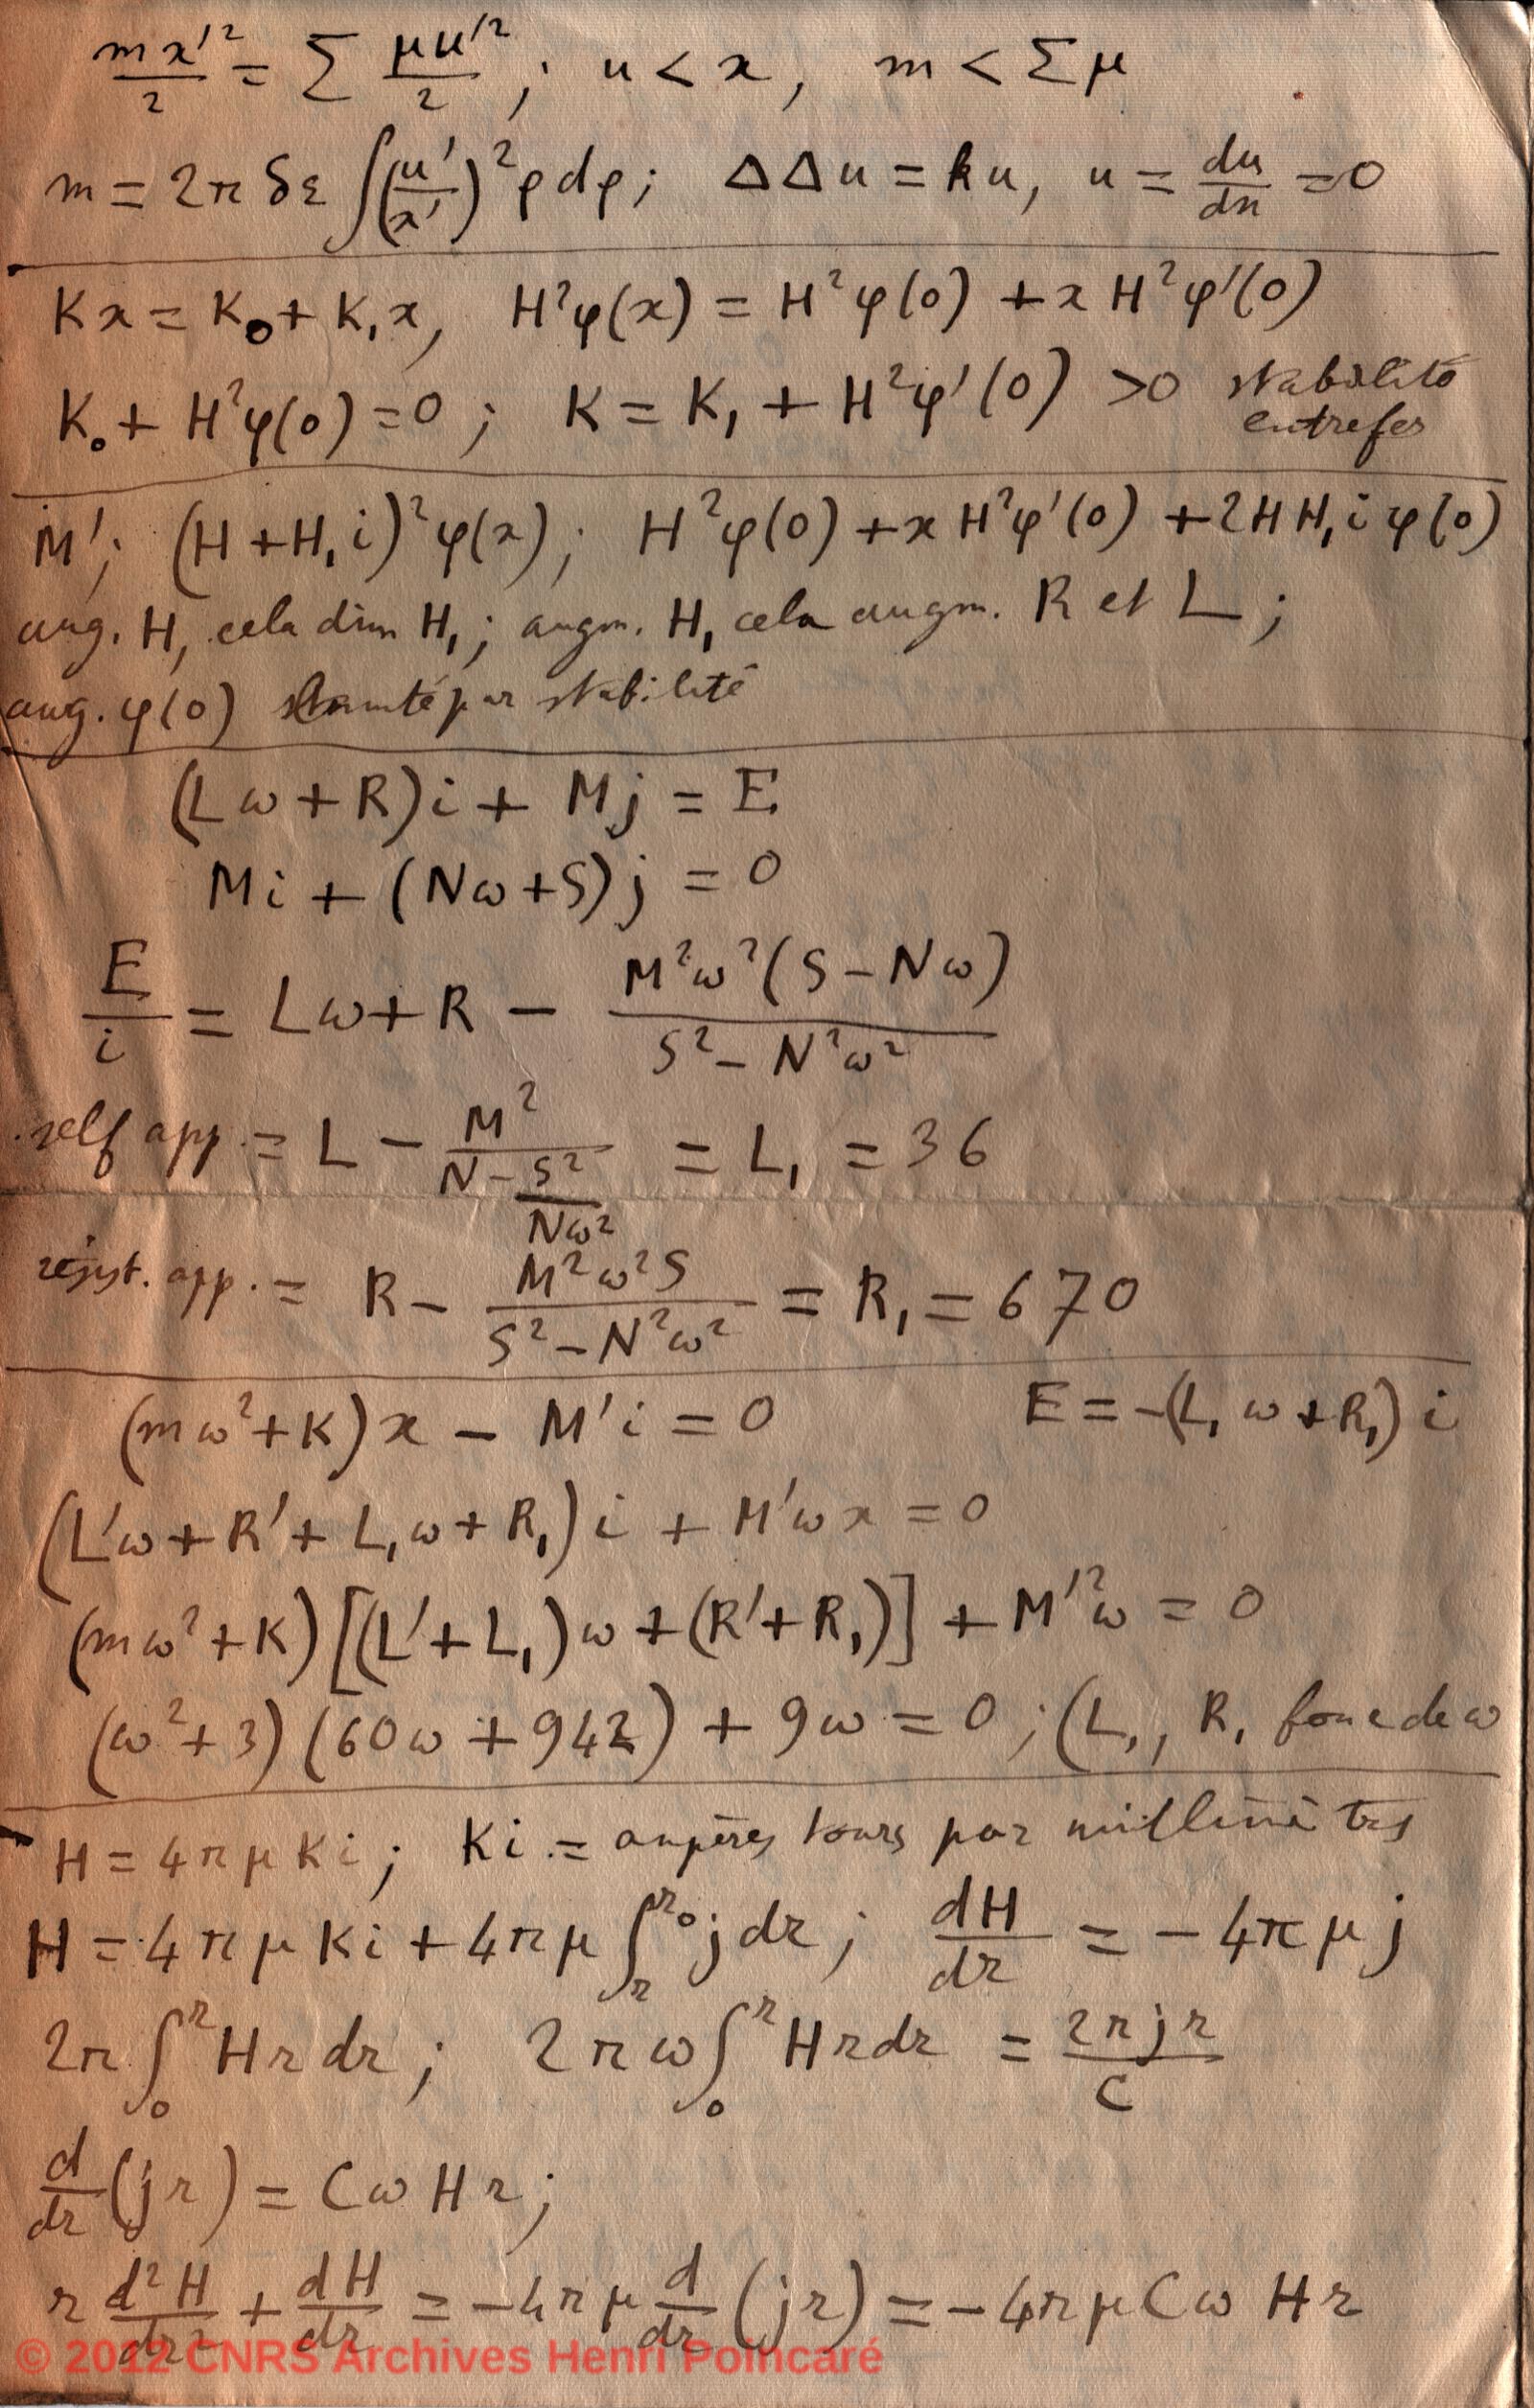 mx'²/2 = Σ μu'²/2 ; u < x, m < Σμ
m = 2π δε ∫(u'/x')² ρdρ ; ΔΔu = ku, u = du/dn = 0
Kx = K₀ + K₁x, H²φ(x) = H²φ(0) + x H²φ'(0)
K₀ + H²φ(0) = 0 ; K = K₁ + H²φ'(0) > 0 stabilité
entrefer
M' ; (H + H₁i)²φ(x) ; H²φ(0) + x H²φ'(0) + 2HH₁i φ(0)
aug. H, cela dim H₁ ; augm. H₁ cela augm. R et L ;
aug. φ(0) par stabilité
(Lω + R)i + Mj = E
Mi + (Nω + S)j = 0
E/i = Lω + R - M²ω²(S - Nω)/(S² - N²ω²)
self app. = L - M²/(N - S²/(Nω²)) = L₁ = 36
résist. app. = R - M²ω²S/(S² - N²ω²) = R₁ = 670
(mω² + K)x - M'i = 0 E = -(L₁ω + R₁)i
(L'ω + R' + L₁ω + R₁)i + M'ωx = 0
(mω² + K)[(L' + L₁)ω + (R' + R₁)] + M'²ω = 0
(ω² + 3)(60ω + 942) + 9ω = 0 ; (L₁, R₁ fonc de ω
H = 4πμKi ; Ki = ampères tours par millimètres
H = 4πμKi + 4πμ ∫ᵣ^r₀ jdr ; dH/dr = -4πμj
2π ∫₀^r Hrdr ; 2πω ∫₀^r Hrdr = 2πjr/C
d/dr (jr) = CωHr ;
r d²H/dr² + dH/dr = -4πμ d/dr (jr) = -4πμCωHr
© 2012 CNRS Archives Henri Poincaré